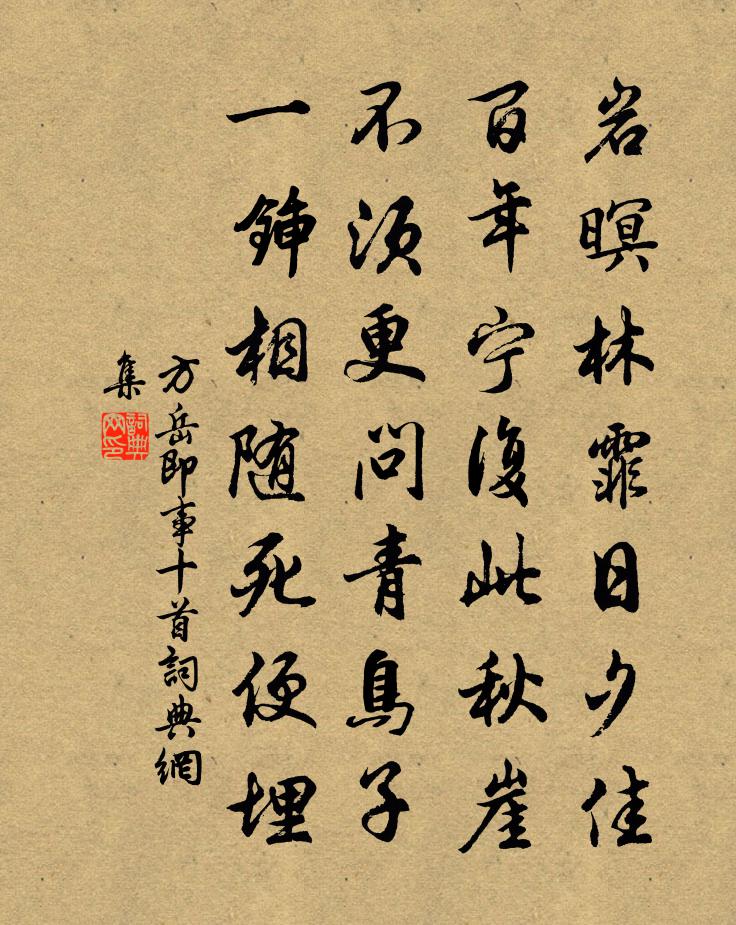 岩暝林霏日夕佳
百年宁復此秋崖
不須更問青鳥子
一鍤相随死便埋
方岳即事十首詞典網
集
詞典網印